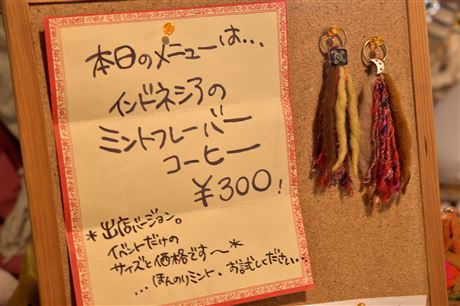 本日のメニューは...
インドネシアの
ミントフレーバー
コーヒー
¥300!
*出店バージョン。
イベントだけの
サイズと価格です〜*
...ほんのりミント、お試しください...